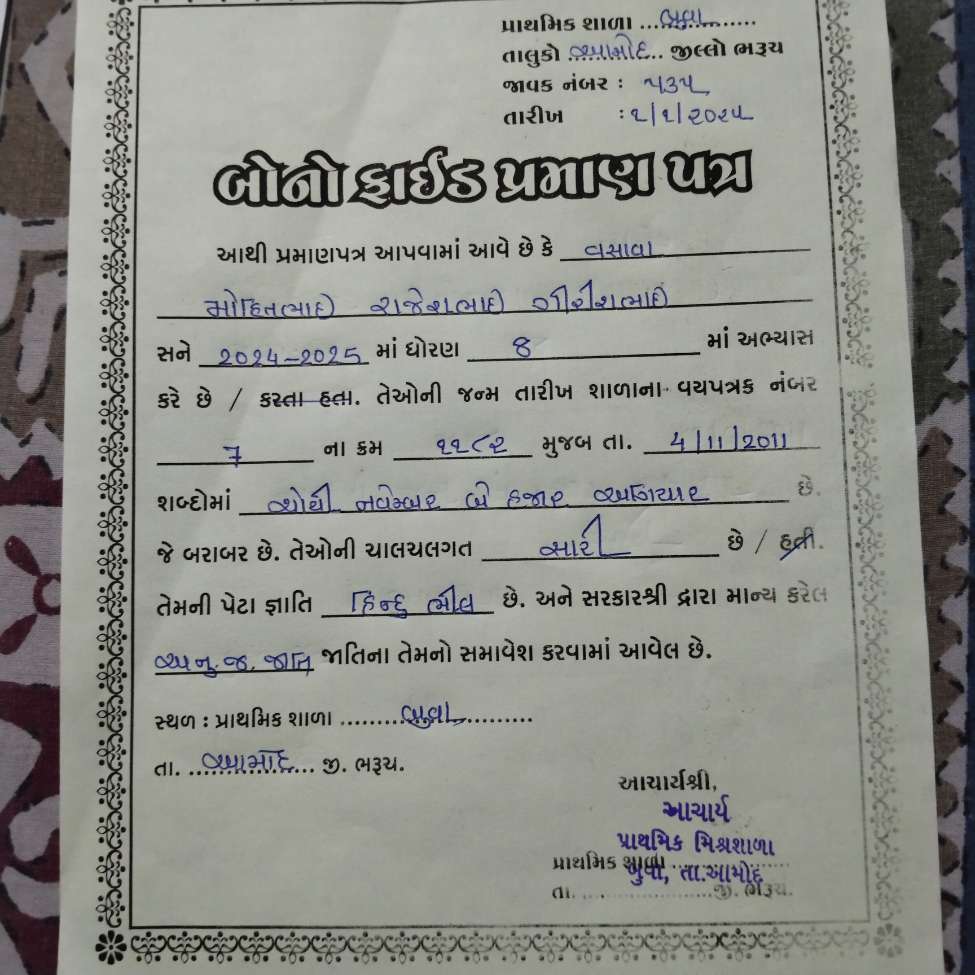 પ્રાથમિક શાળા ...બુવા...........
તાલુકો આમોદ.. જીલ્લો ભરૂચ
જાવક નંબર : ૫૩૫
તારીખ : ૧/૧/૨૦૨૫
બોનોફાઈડ પ્રમાણ પત્ર
આથી પ્રમાણપત્ર આપવામાં આવે છે કે વસાવા
મોહિતભાઇ રાજેશભાઇ ગીરીશભાઇ
સને 2024-2025 માં ધોરણ 8 માં અભ્યાસ
કરે છે / કરતા હતા. તેઓની જન્મ તારીખ શાળાના વયપત્રક નંબર
7 ના ક્રમ ૧૧૮૨ મુજબ તા. 4/11/2011
શબ્દોમાં ચોથી નવેમ્બર બે હજાર અગિયાર છે.
જે બરાબર છે. તેઓની ચાલચલગત સારી છે / હતી.
તેમની પેટા જ્ઞાતિ હિન્દુ ભીલ છે. અને સરકારશ્રી દ્વારા માન્ય કરેલ
અનુ.જ.જાતિ જાતિના તેમનો સમાવેશ કરવામાં આવેલ છે.
સ્થળ : પ્રાથમિક શાળા .........બુવા...........
તા. ..આમોદ... જી. ભરૂચ.
આચાર્યશ્રી,
આચાર્ય
પ્રાથમિક મિશ્રશાળા
પ્રાથમિક શાળા ..................
બુવા, તા.આમોદ
તા. .................. જી. ભરૂચ.